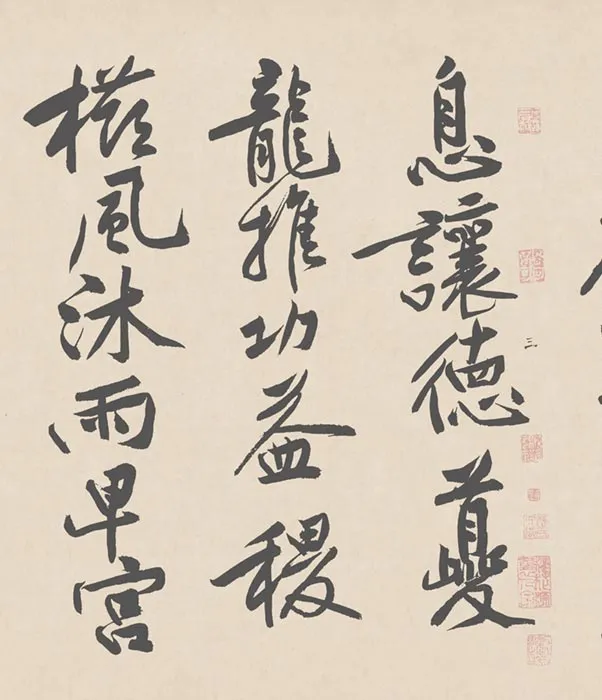 三
息讓德夔
龍推功益稷
櫛風沐雨卑宮